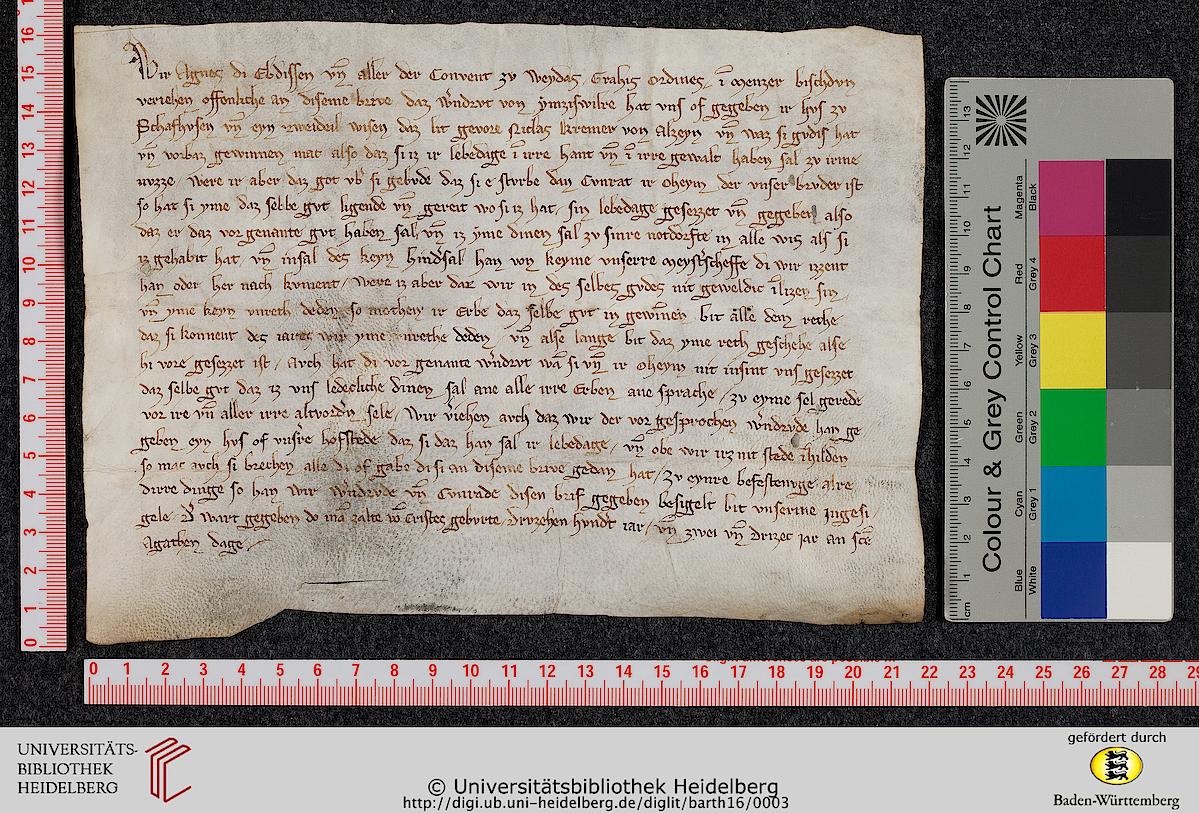 Wir Agnes di Ebdissen vn̄ aller der Convent zv Weydas Grahis Ordines, ī Menzer bischdvn
veriehen offenliche an diseme brive daz Wndrvt von ymziswilre hat vns of gegeben ir hvs zv
Schafhvsen vn̄ eyn zweideil wisen daz lit gevore Niclas kremer von Alzeyn vn̄ waz si gvdis hat
vn̄ vorbaz gewinnen mac also daz si iz ir lebedage ī irre hant vn̄ ī irre gewalt haben sal zv irme
nvzze, were ir aber daz got vb si gebvde daz si e stvrbe dan Cvnrat ir oheym der vnser brvder ist
so hat si yme daz selbe gvt ligende vn̄ gereit wo si iz hat, sin lebedage gesezzet vn̄ gegeben also
daz er daz vor genante gvt haben sal, vn̄ iz yme dinen sal zv sinre notdorfte in alle wis als si
iz gehabit hat, vn̄ insal des keyn hindsal han von keyme vnserre meystscheffe di wir izzent
han oder her nach kvment, Were iz aber daz wir in des selbes gvdes nit geweldic īlizen sin,
vn̄ yme keyn vnreth deden, so mothen ir Erbe daz selbe gvt in gewīnen bit alle dem rethe
daz si konnent des iares wir yme vnrethe deden, vn̄ alse lange bit daz yme reth geschehe alse
hi vore gesezzet ist, Avch hat di vor genante Wndrvt wā si vn̄ ir oheym nit insint vns gesezzet
daz selbe gvt daz iz vns ledecliche dinen sal ane alle irre Erben ane sprache, zv eyme sel gerede
vor ire vn̄ aller irre altvordn sele, Wir viehen avch daz wir der vor gesprochen Wndrvde han ge
geben eyn hvs of vnsre hofstede daz si daz han sal ir lebedage, vn̄ obe wir irz nit stede īhilden
so mac avch si brechen alle di of gabe di si an diseme brive gedan hat, Zv eynre befestenvge alre
dirre dinge so han wir Wndrvde vn̄ Cvnrade disen brif gegeben besigelt bit vnserme Ingesi
gele, D wart gegeben do mā zalte vō Cristes gebvrte Drvzehen hvndt iar, vn̄ zwei vn̄ drizec iar an scē
Agathen dage,
Colour & Grey Control Chart
Blue Cyan Green Yellow Red Magenta
White Grey 1 Grey 2 Grey 3 Grey 4 Black
cm 1 2 3 4 5 6 7 8 9 10 11 12 13
0 1 2 3 4 5 6 7 8 9 10 11 12 13 14 15 16
0 1 2 3 4 5 6 7 8 9 10 11 12 13 14 15 16 17 18 19 20 21 22 23 24 25 26 27 28 29
UNIVERSITÄTS-
BIBLIOTHEK
HEIDELBERG
© Universitätsbibliothek Heidelberg
http://digi.ub.uni-heidelberg.de/diglit/barth16/0003
gefördert durch
Baden-Württemberg